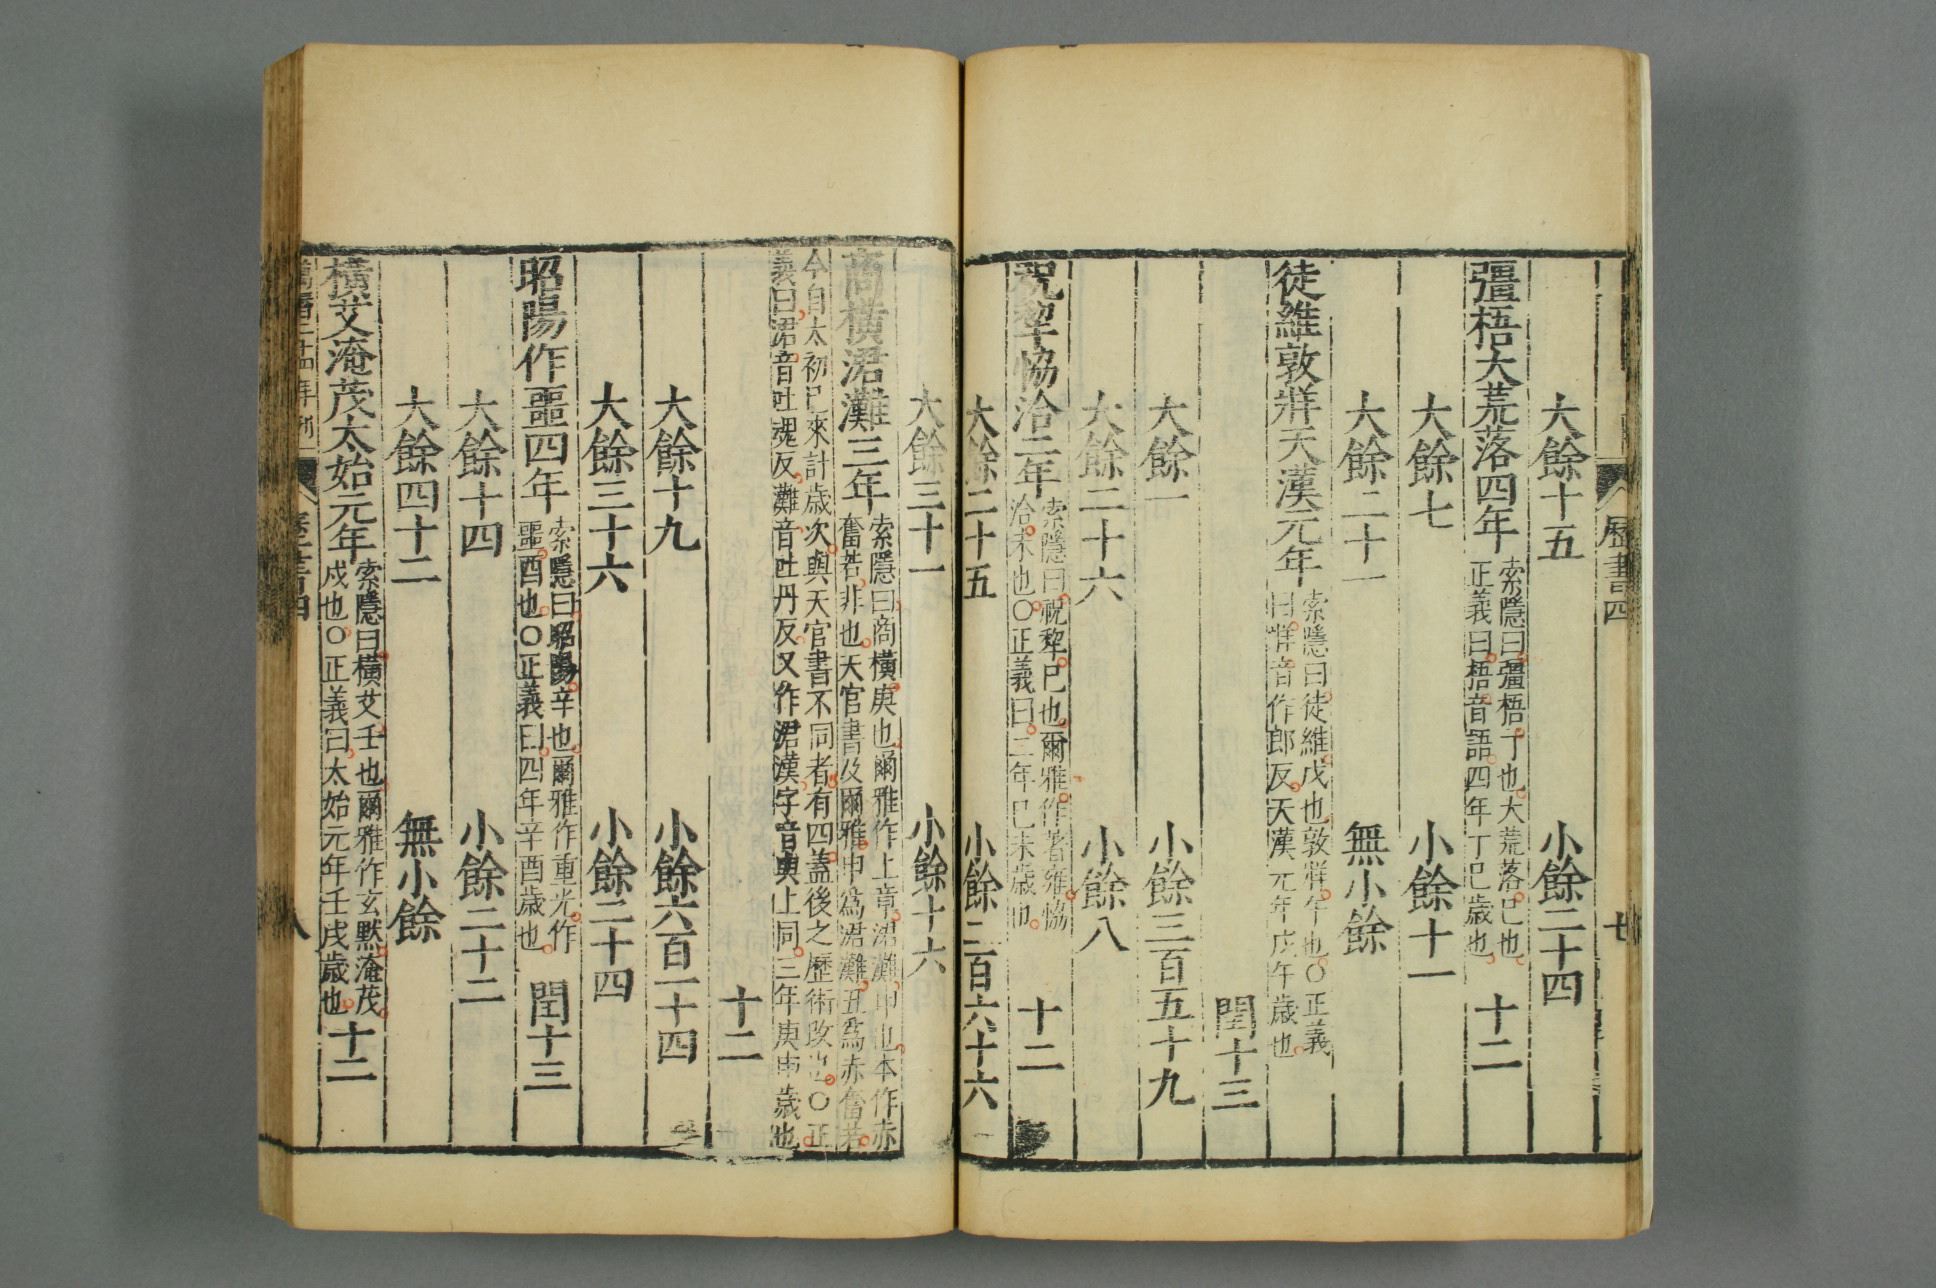 歷書四
七
大餘十五　小餘二十四
彊梧大荒落四年　索隱曰彊梧丁也大荒落巳也
正義曰梧音語四年丁巳歲也　十二
大餘七　小餘十一
大餘二十一　無小餘
徒維敦牂天漢元年　索隱曰徒維戊也敦牂午也○正義
曰牂音作郎反天漢元年戊午歲也
閏十三
大餘一　小餘三百五十九
大餘二十六　小餘八
祝犂協洽二年　索隱曰祝犂巳也爾雅作著雍協
洽未也○正義曰二年巳未歲也　十二
大餘二十五　小餘二百六十六
大餘三十一　小餘十六
商橫涒灘三年　索隱曰商橫庚也爾雅作上章涒灘申也本作赤
奮若非也天官書及爾雅申為涒灘丑為赤奮若
今自太初已來計歲次與天官書不同者有四蓋後之歷術改也○正
義曰涒音吐魂反灘音吐丹反又作涒漢字音與上同三年庚申歲也
十二
大餘十九　小餘六百一十四
大餘三十六　小餘二十四
昭陽作噩四年　索隱曰昭陽辛也爾雅作重光作
噩酉也○正義曰四年辛酉歲也　閏十三
大餘十四　小餘二十二
大餘四十二　無小餘
橫艾淹茂太始元年　索隱曰橫艾壬也爾雅作玄黓淹茂
戌也○正義曰太始元年壬戌歲也　十二
萬曆二十四年刊
八